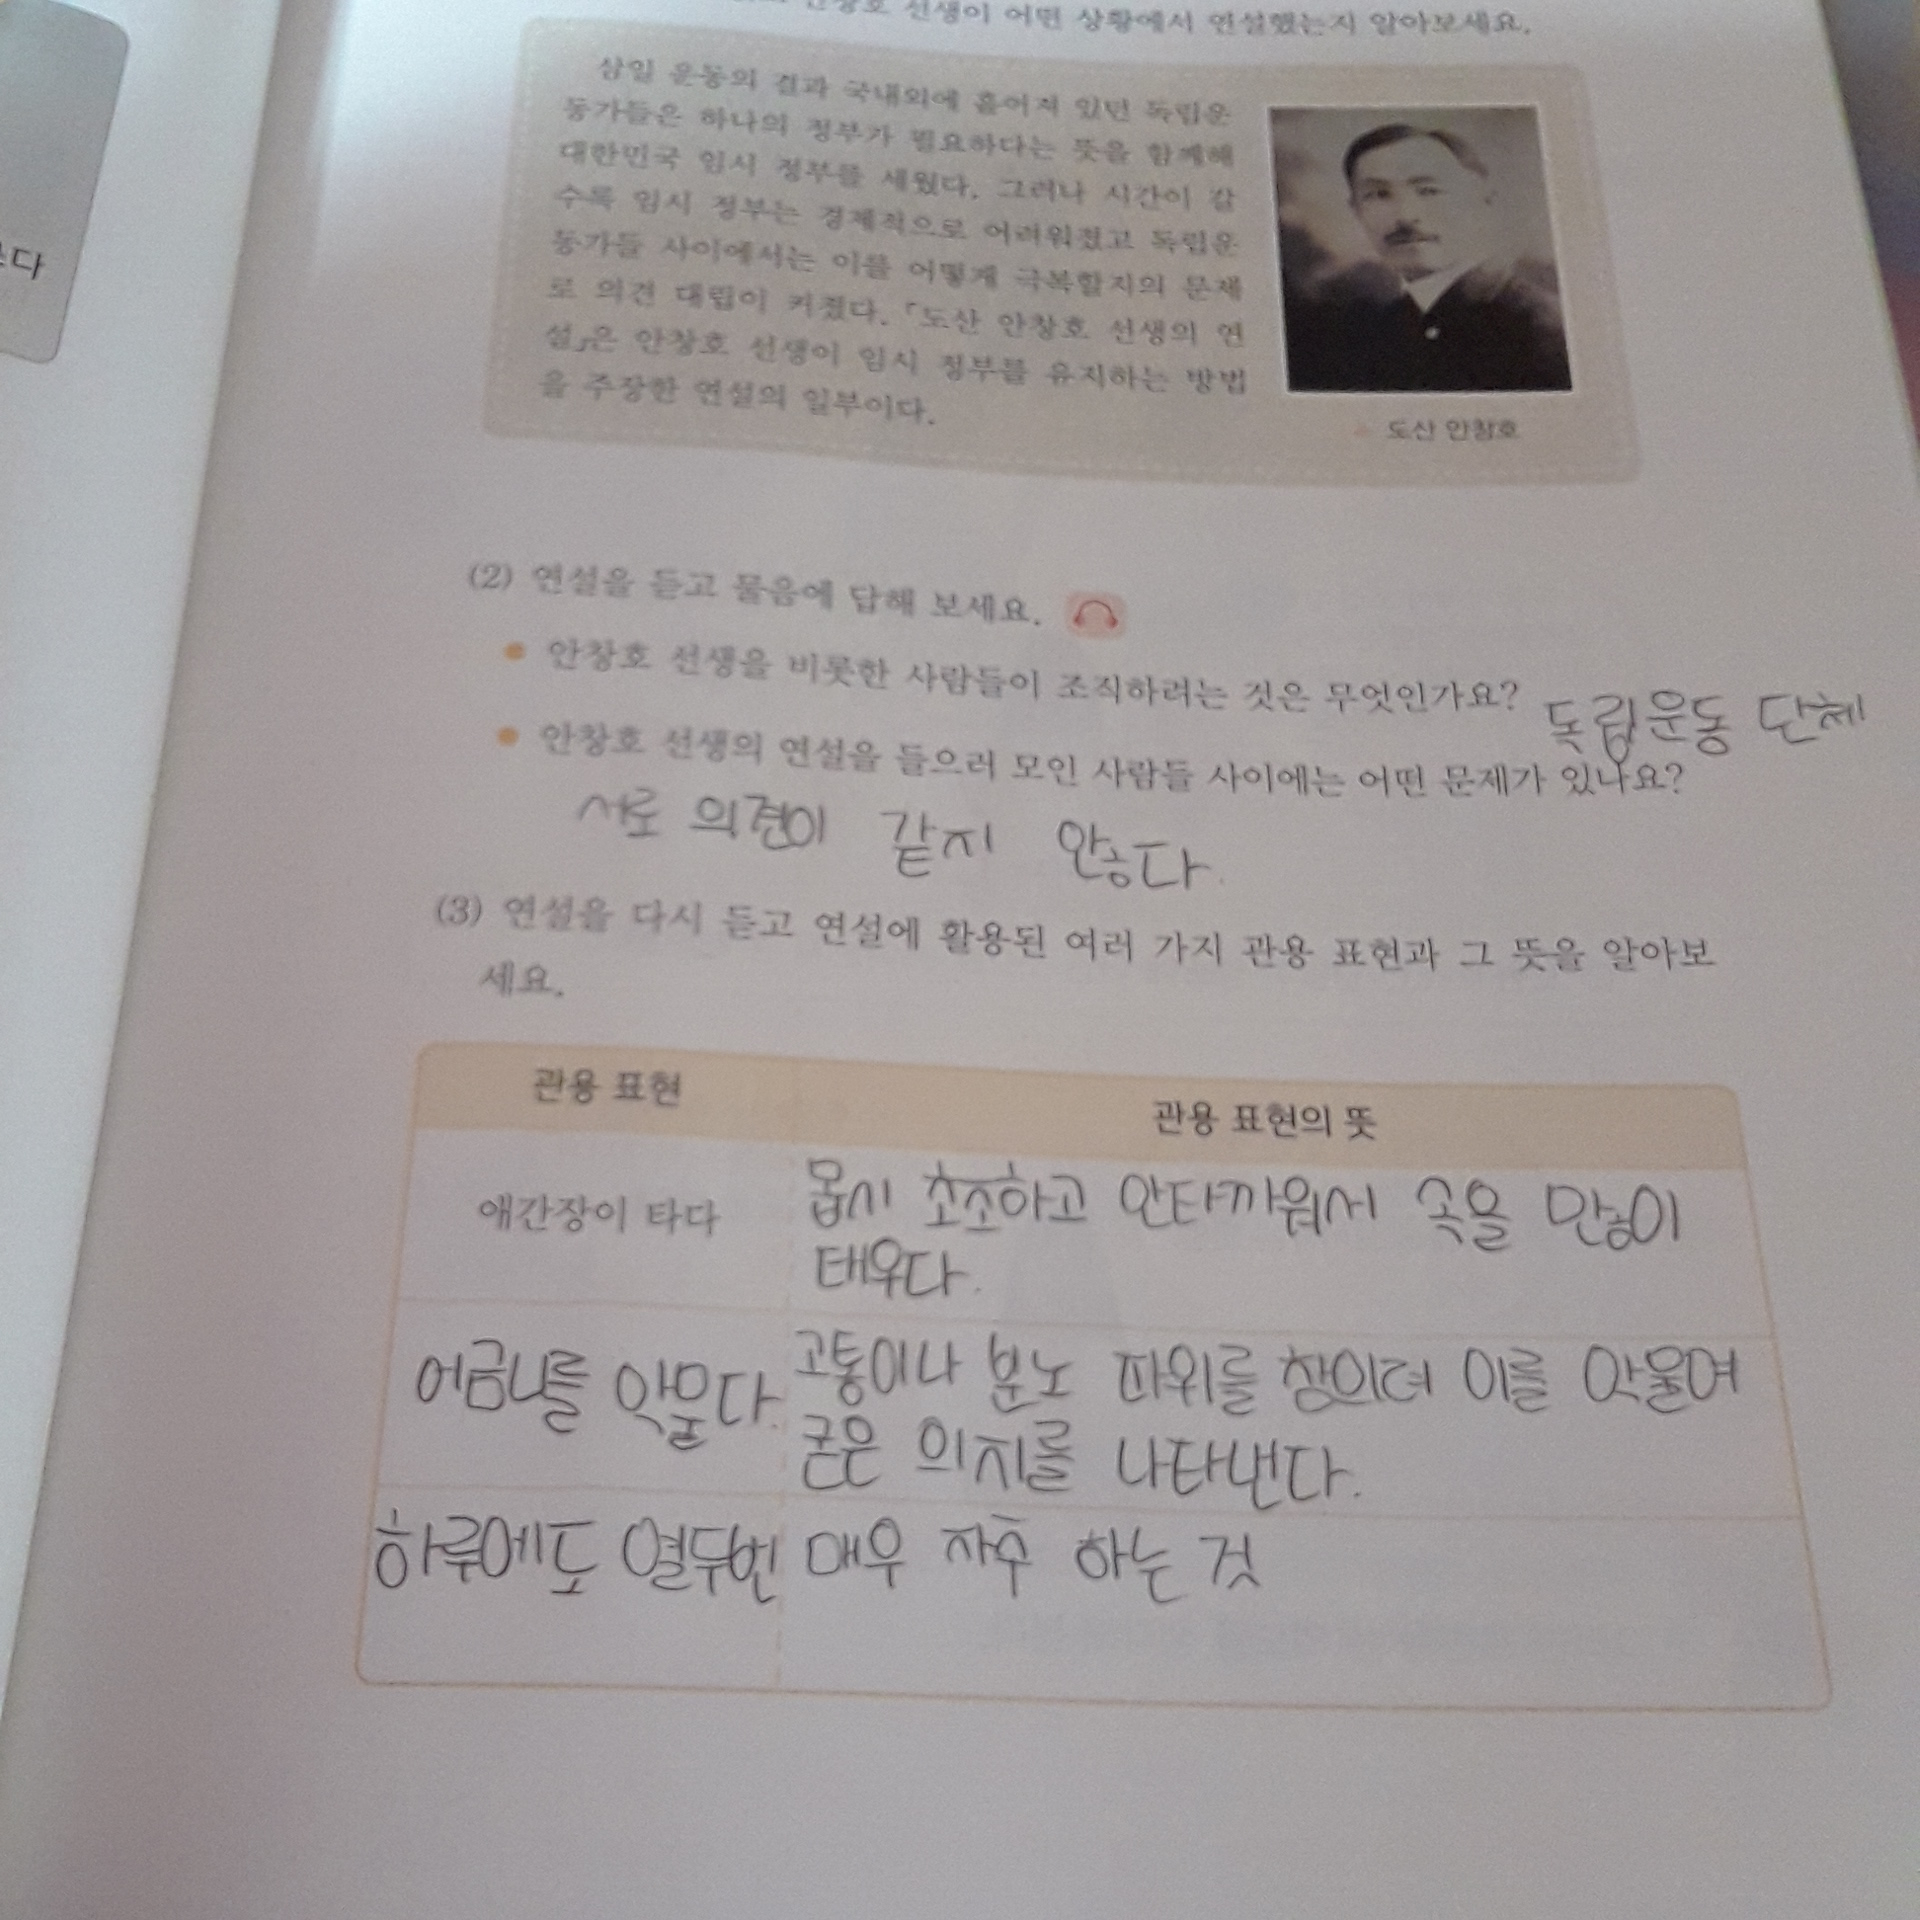 안창호 선생이 어떤 상황에서 연설했는지 알아보세요.
삼일 운동의 결과 국내외에 흩어져 있던 독립운
동가들은 하나의 정부가 필요하다는 뜻을 함께해
대한민국 임시 정부를 세웠다. 그러나 시간이 갈
수록 임시 정부는 경제적으로 어려워졌고 독립운
동가들 사이에서는 이를 어떻게 극복할지의 문제
로 의견 대립이 커졌다. 「도산 안창호 선생의 연
설」은 안창호 선생이 임시 정부를 유지하는 방법
을 주장한 연설의 일부이다.
도산 안창호
(2) 연설을 듣고 물음에 답해 보세요.
• 안창호 선생을 비롯한 사람들이 조직하려는 것은 무엇인가요? 독립운동 단체
• 안창호 선생의 연설을 들으러 모인 사람들 사이에는 어떤 문제가 있나요?
서로 의견이 같지 않다.
(3) 연설을 다시 듣고 연설에 활용된 여러 가지 관용 표현과 그 뜻을 알아보
세요.
관용 표현
관용 표현의 뜻
애간장이 타다
몹시 초조하고 안타까워서 속을 많이
태우다.
어금니를 악물다.
고통이나 분노 따위를 이를 악물며
굳은 의지를 나타낸다.
하루에도 열두번
매우 자주 하는 것